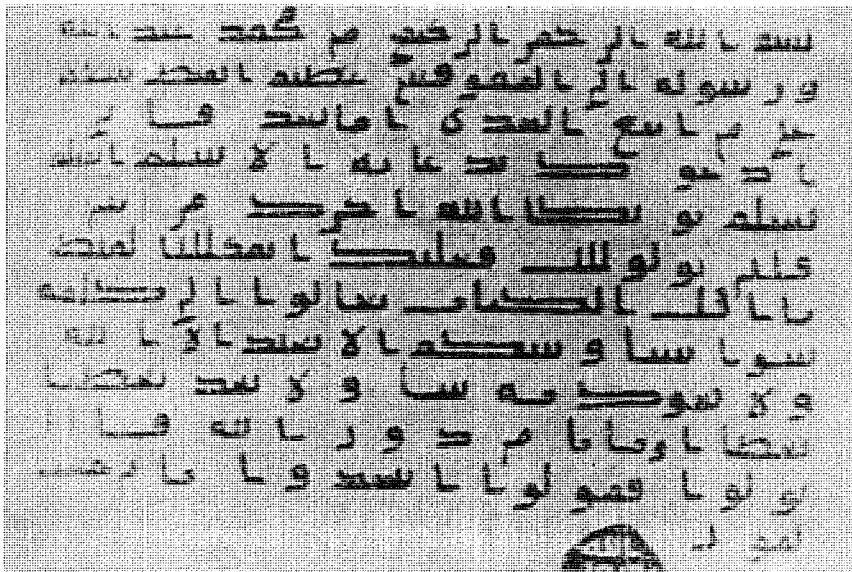 بسم الله الرحمن الرحيم من محمد عبد الله
ورسوله الى المقوقس عظيم القبط سلم
على من اتبع الهدى اما بعد فانى
ادعوك بدعاية الاسلم اسلم
تسلم يوتك الله اجرك مرتين
فان توليت فعليك القبط
يا اهل الكتاب تعالوا الى كلمة
سوا بيننا وبينكم الا نعبد الا الله
ولا نشرك به شيا ولا يتخذ بعضنا
بعضا اربابا من دون الله فان
تولوا فقولوا اشهدوا بانا مس
لمون